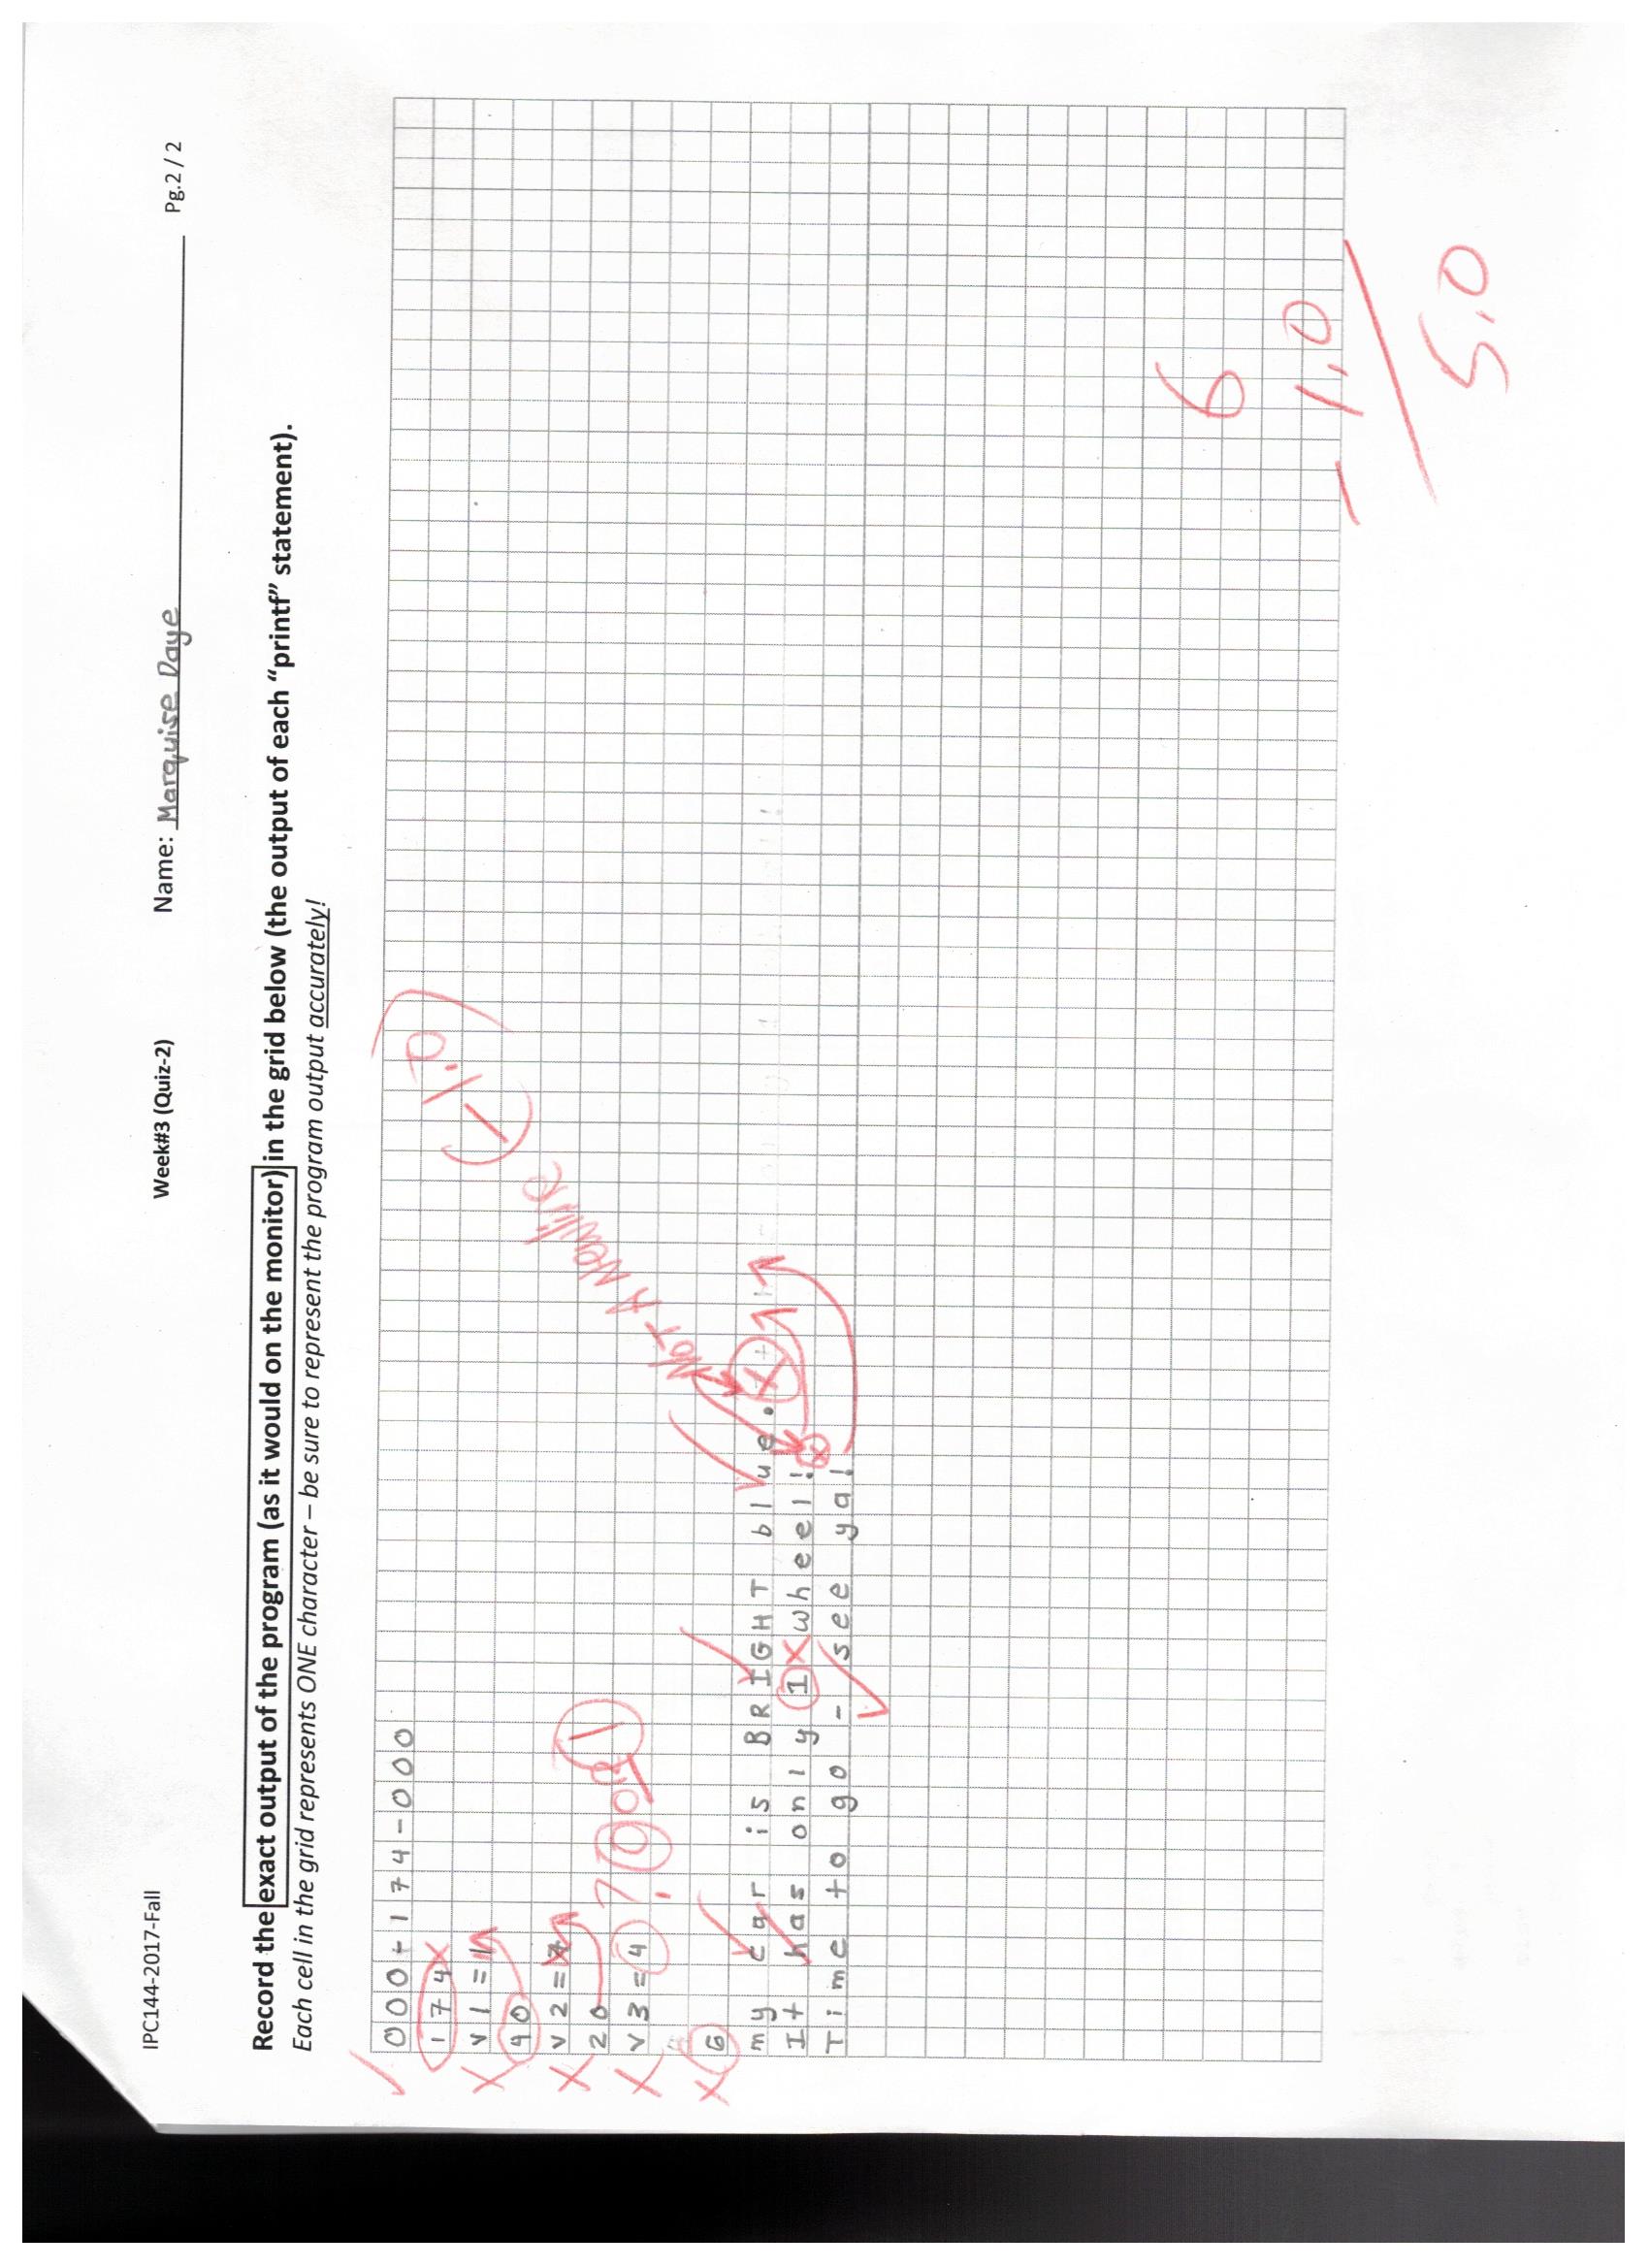 IPC144-2017-Fall Week#3 (Quiz-2) Name: Marquise Daye Pg.2 / 2
Record the exact output of the program (as it would on the monitor) in the grid below (the output of each "printf" statement).
Each cell in the grid represents ONE character – be sure to represent the program output accurately!
000+174-000
174
V1=1
40
V2=
20
V3=4
G
my car is BRIGHT blue.
It has only 1 wheel!
Time to go - see ya!
NOT A Newline
-1.0
6
- 1.0
5.0